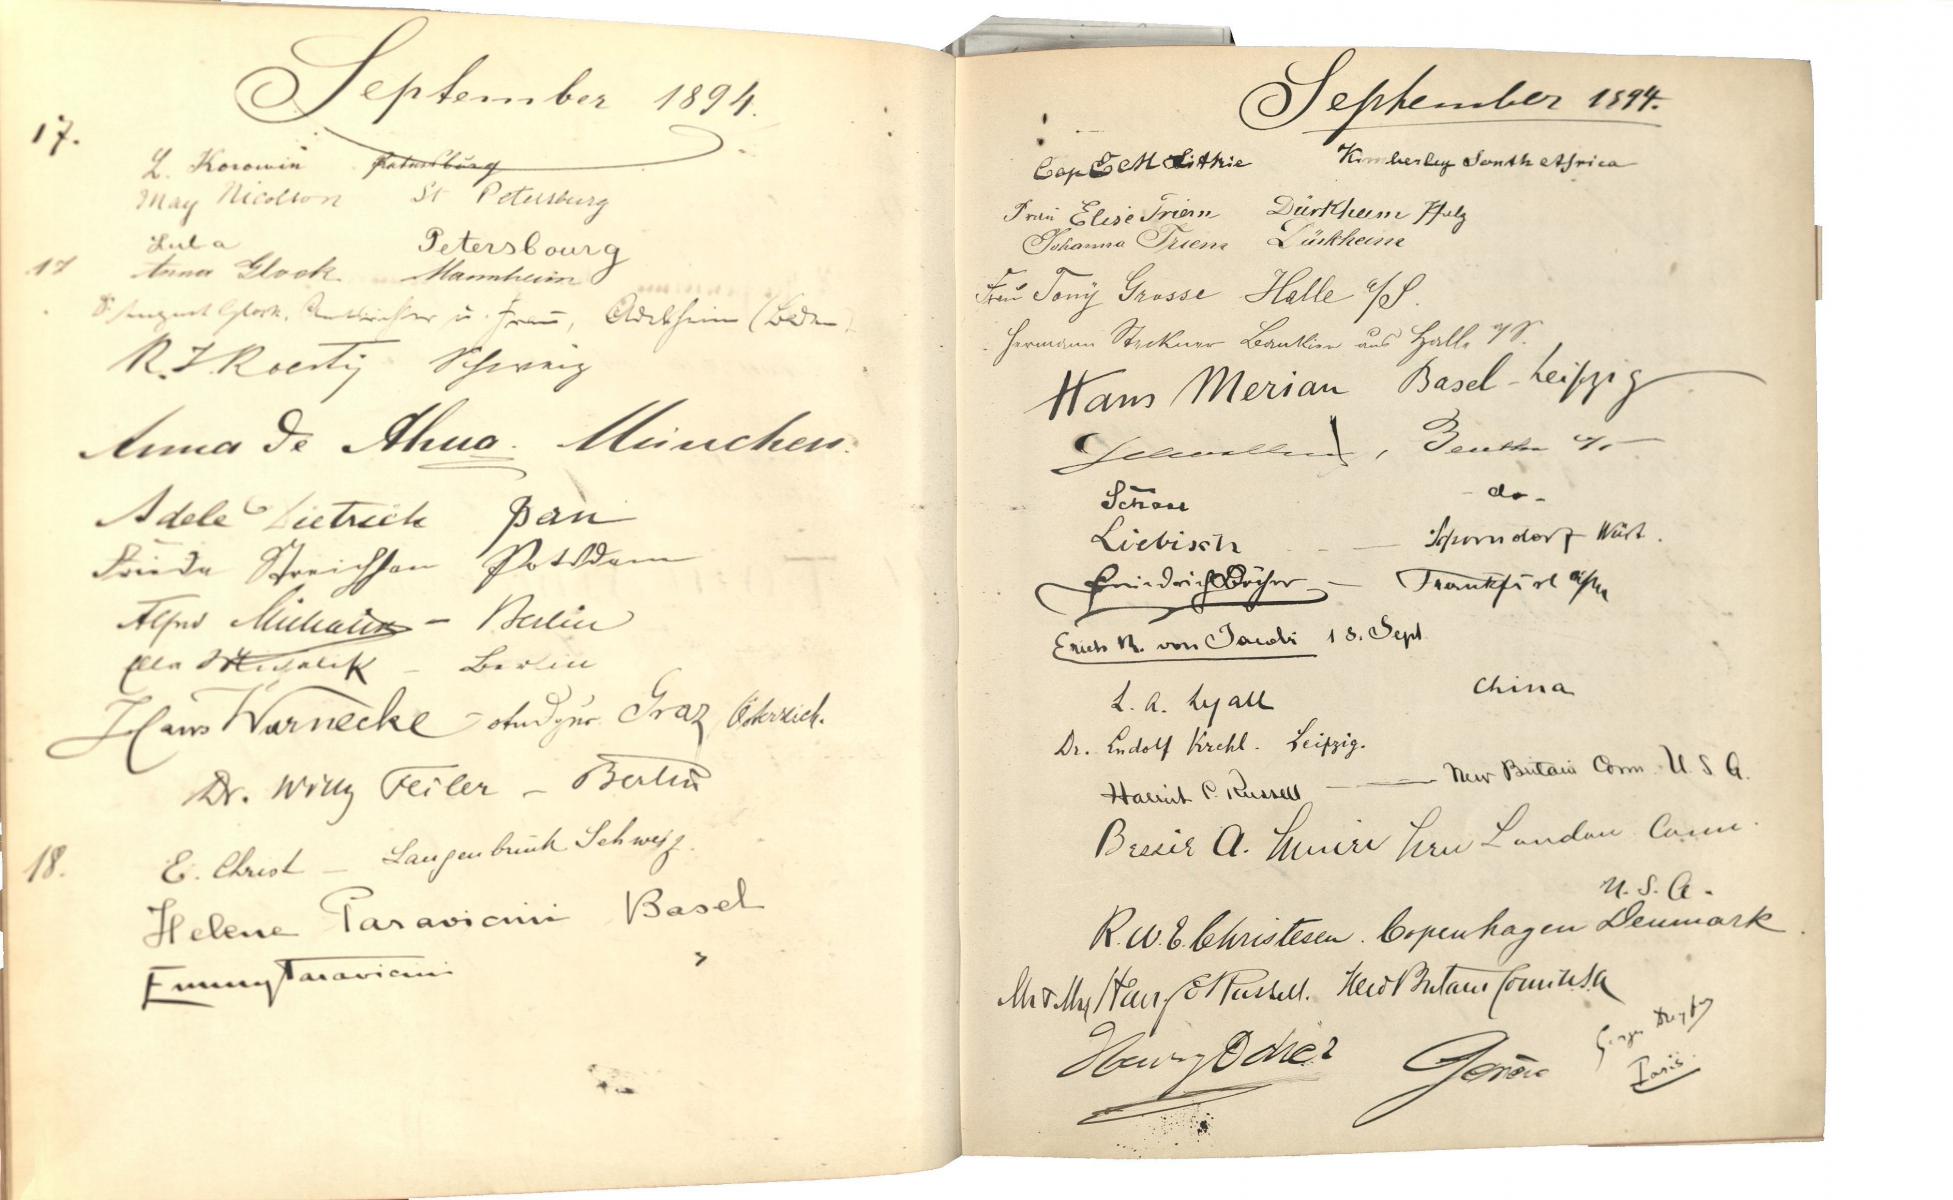 September 1894.
17.
L. Korowin Petersburg
May Nicolson St Petersburg
Lula Petersbourg
17 Anna Glock Mannheim
Dr August Glock, u. Frau, Adelsheim (Baden)
R. J. Schweiz
Anna de Ahna. München.
Adele Dietrich
Frieda Potsdam
Alfred - Berlin
- Berlin
Hans Warnecke - Graz Österreich.
Dr. Willy Feiler - Berlin
18. E. Christ - Langenbruck Schweiz.
Helene Paravicini Basel
Emmy Paravicini "
September 1894.
Cap E M Lithie Kimberley South Africa
Frau Elise Triem Dürkheim Pfalz
Johanna Triem Dürkheim
Frau Tony Grosse Halle a/S.
Hermann Steckner Bankier aus Halle a/S.
Hans Merian Basel - Leipzig
- do -
Liebisch - - Schorndorf Würt.
Friedrich - Frankfurt a/M
Erich R. von Jacobi 18. Sept
L. A. Lyall China
Dr. Ludolf Krehl. Leipzig.
Harriet P. Russell — New Britain Conn. U. S. A.
Bessie A. New London Conn.
U. S. A.
R. W. E. Christesen. Copenhagen Denmark.
Mr & Mrs Henry E Russell. New Britain Conn U.S.A
Henry Odier
Genève
Georges Dreyfus
Paris.